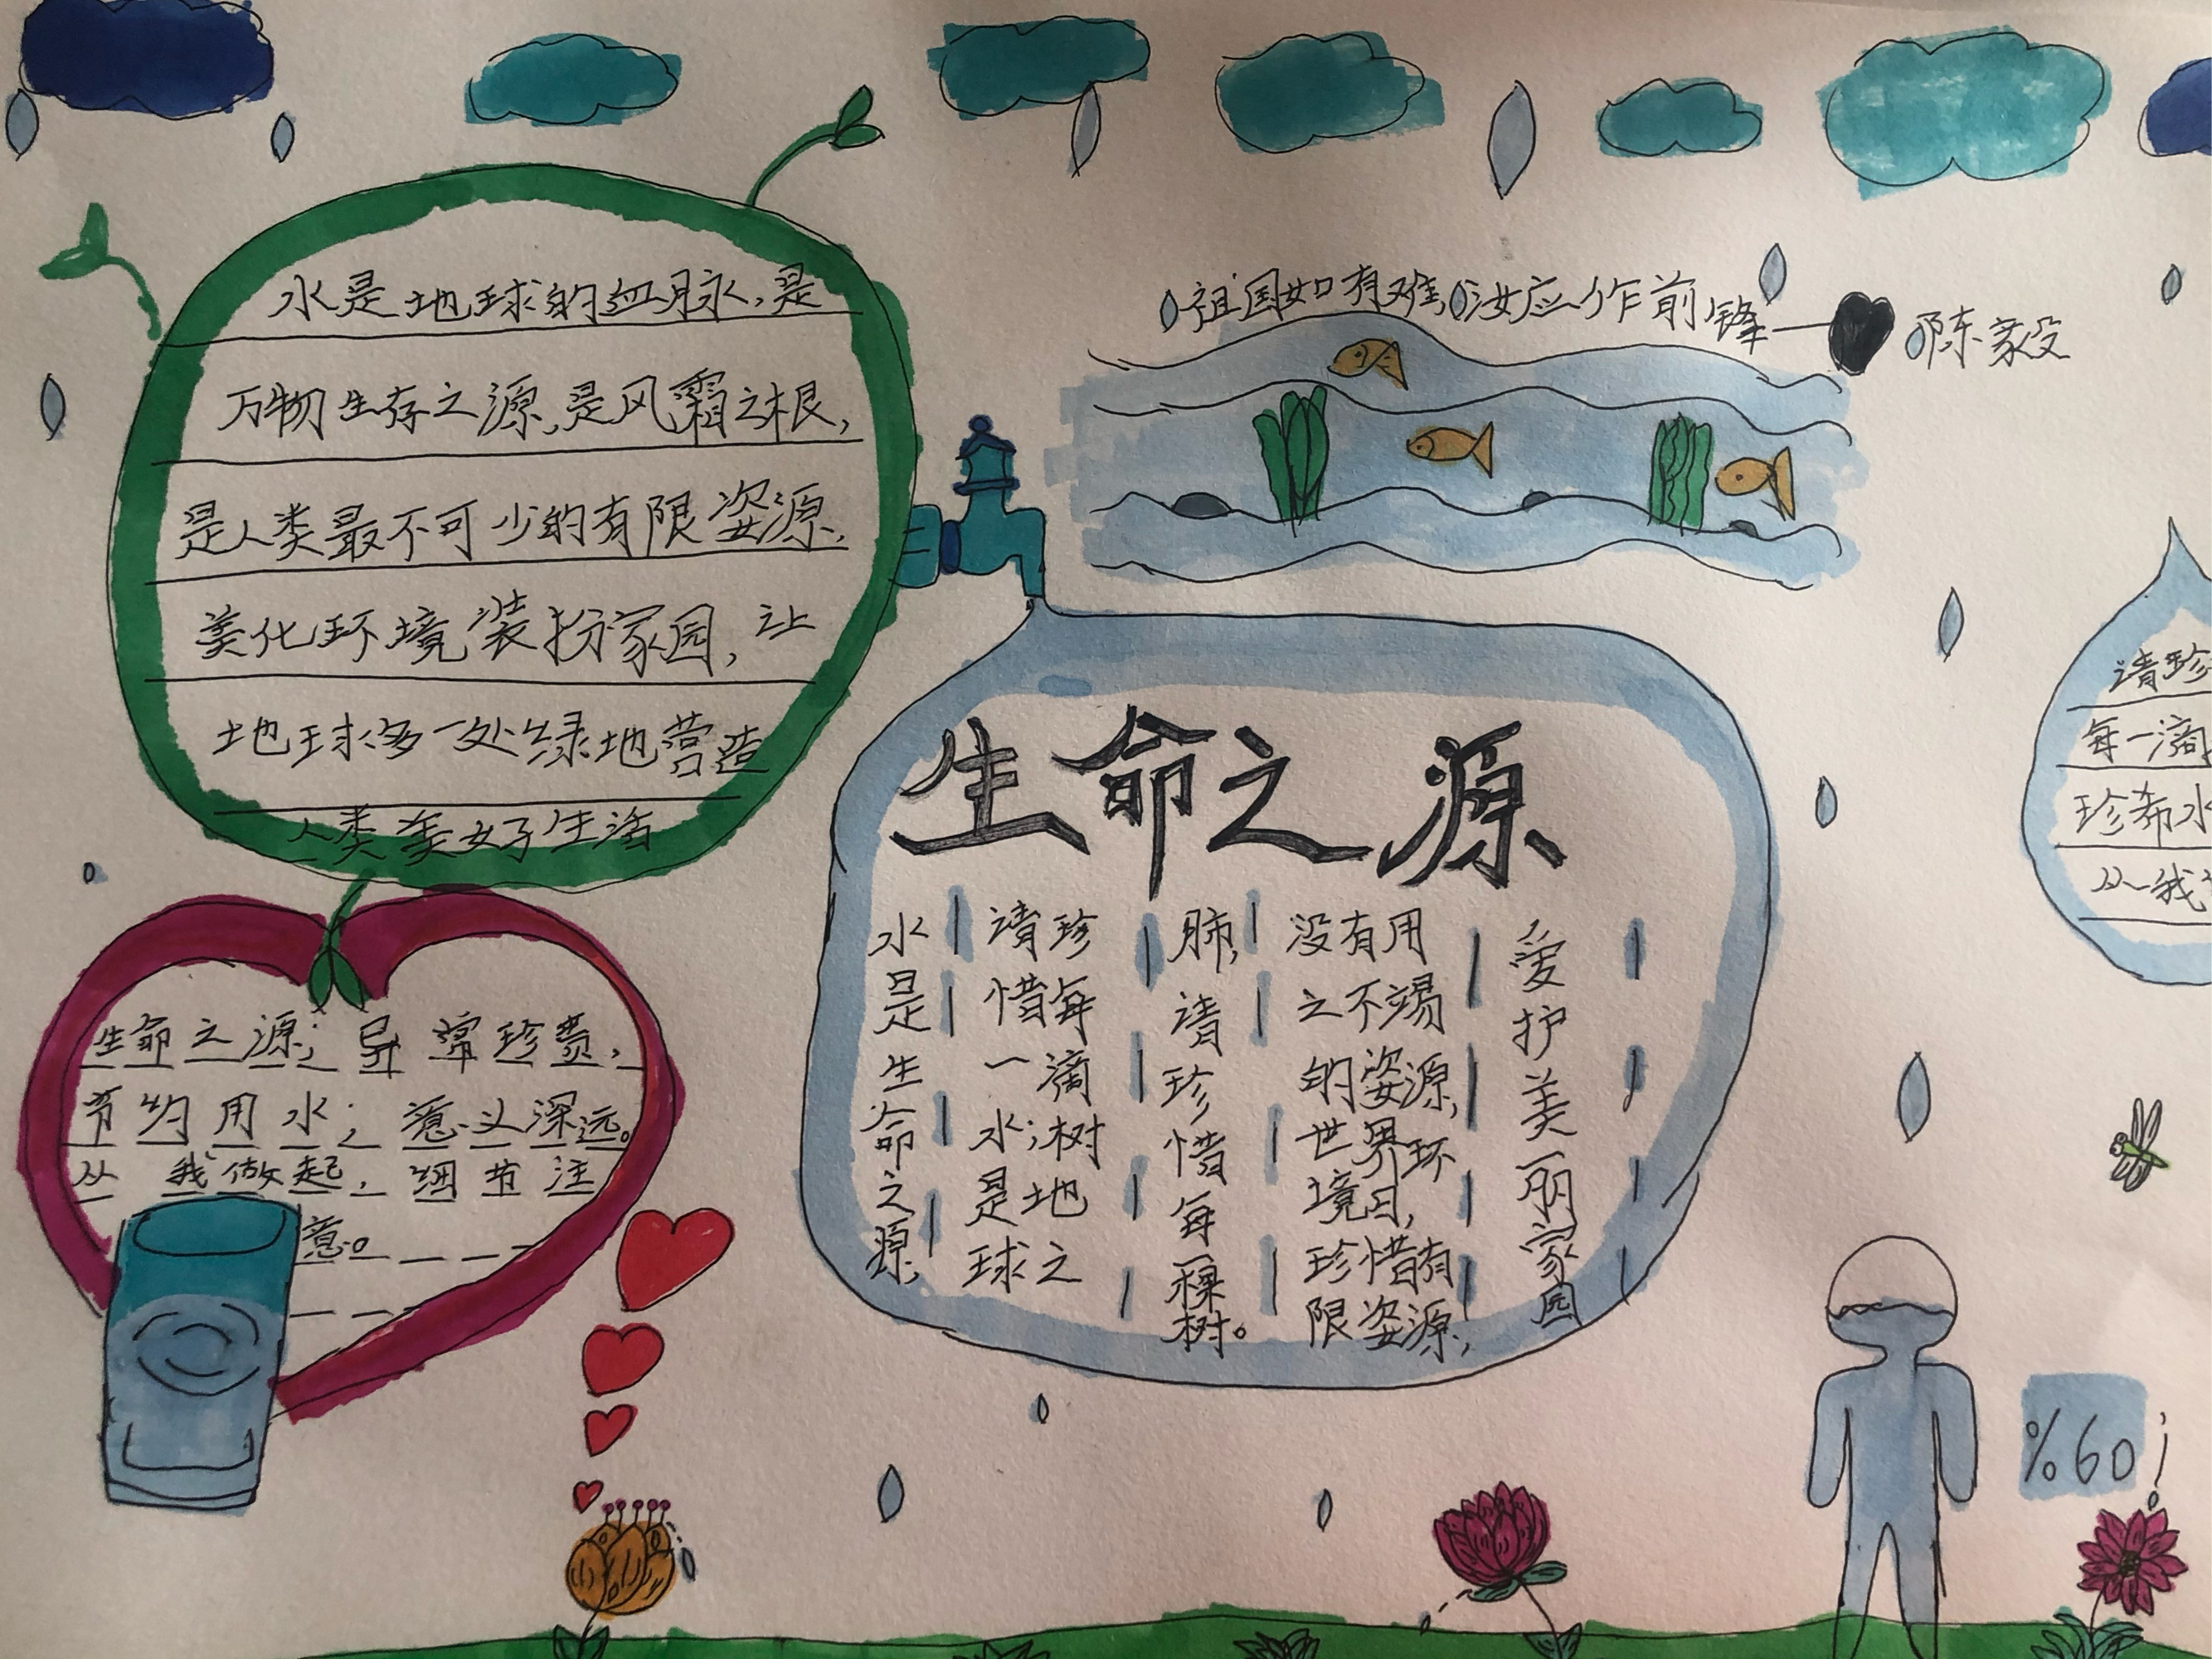 水是地球的血脉,是
万物生存之源,是风霜之根,
是人类最不可少的有限姿源,
美化环境装扮家园,让
地球多一处绿地营造
人类美好生活
祖国如有难,汝应作前锋——陈毅
生命之源
水是生命之源,
请珍
惜每
一滴
水;树
是地
球之
肺,
请
珍
惜
每
一
棵
树。
没有用
之不竭
的姿源,
世界环
境日,
珍惜有
限姿源,
爱护美丽家园
生命之源;异常珍贵,
节约用水;意义深远。
从我做起,细节注
意。
请珍
每一滴
珍希水
从我
%60